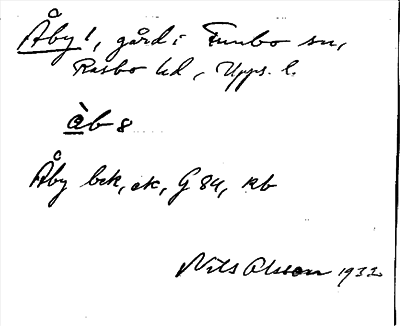 Åby 1, gård i Funbo sn,
Rasbo hd, Upps. l.
Åby bek, ek, G 84, kb
Nils Olsson 1932